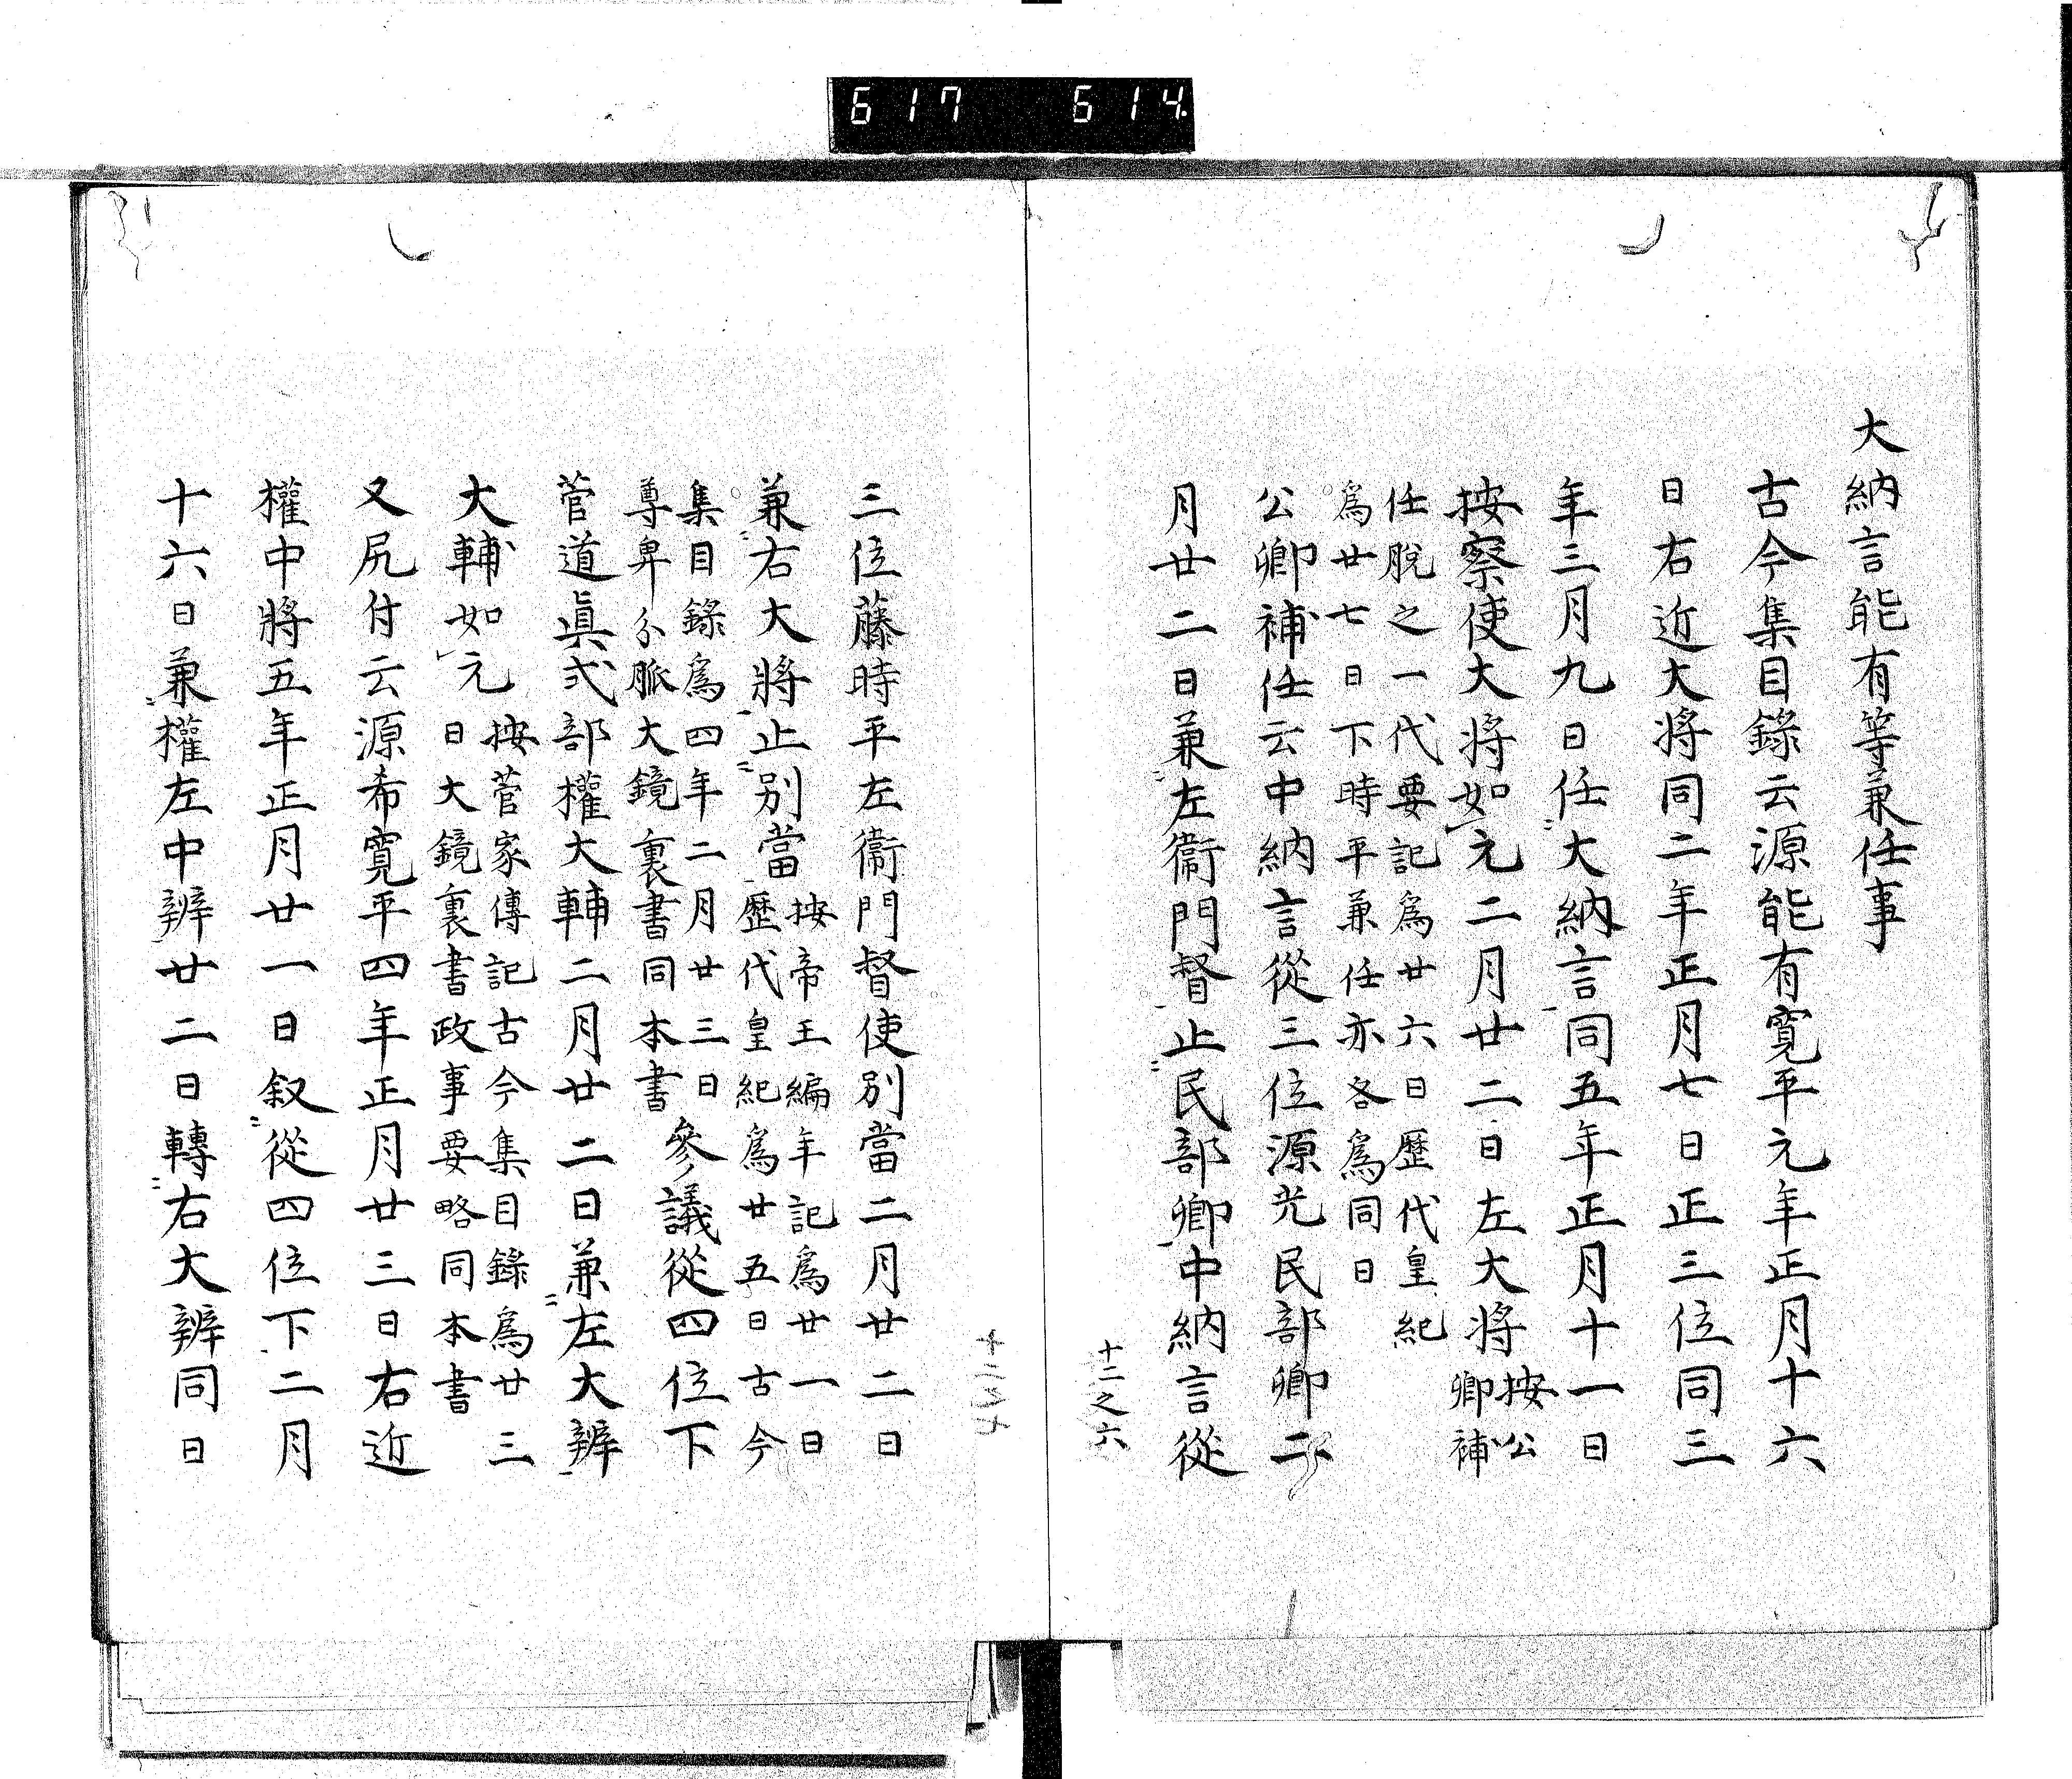 617 614
大納言能有等兼任事
古今集目錄云源能有寛平元年正月十六
日右近大将同二年正月七日正三位同三
年三月九日任大納言同五年正月十一日
按察使大将如元二月廿二日左大将按公
卿補
任脫之一代要記爲廿六日歷代皇紀
爲廿七日下時平兼任亦各爲同日
公卿補任云中納言從三位源光民部卿二
月廿二日兼左衞門督止民部卿中納言從
十二之六
三位藤時平左衞門督使別當二月廿二日
兼右大將止別當按帝王編年記爲廿一日
歷代皇紀爲廿五日古今
集目錄爲四年二月廿三日
尊卑分脈大鏡裏書同本書
參議從四位下
菅道眞式部權大輔二月廿二日兼左大辨
大輔如元按菅家傳記古今集目錄爲廿三
日大鏡裏書政事要略同本書
又尻付云源希寛平四年正月廿三日右近
權中將五年正月廿一日叙從四位下二月
十六日兼權左中辨廿二日轉右大辨同日